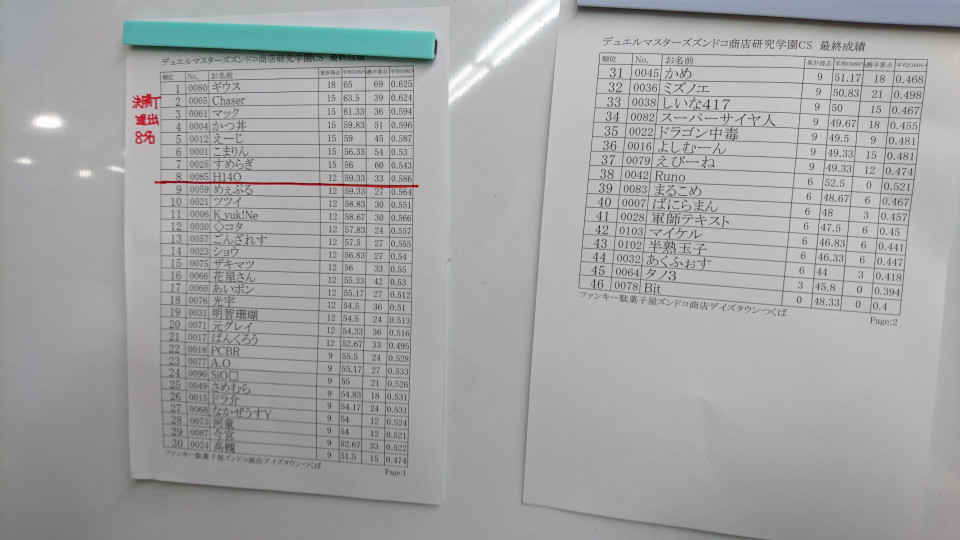 デュエルマスターズズンドコ商店研究学園CS 最終成績
順位 No. お名前 累計得点 平均OMW% 勝手累点 平均OMW%
1 0080 ギウス 18 65 69 0.625
2 0005 Chaser 15 63.5 39 0.624
3 0061 マック 15 61.33 36 0.594
4 0004 かつ丼 15 59.83 51 0.596
5 0012 えーじ 15 59 45 0.587
6 0001 こまりん 15 56.33 54 0.53
7 0025 すめらぎ 15 56 60 0.543
8 0085 H14O 12 59.33 33 0.586
9 0059 めぇぷる 12 59.33 27 0.564
10 0021 ツツイ 12 58.83 30 0.551
11 0006 K_yuk!Ne 12 58.67 30 0.566
12 0030 ◇コタ 12 57.83 24 0.557
13 0057 ごんざれす 12 57.5 27 0.555
14 0023 ショウ 12 56.83 27 0.54
15 0075 ザキマツ 12 56 33 0.55
16 0066 花屋さん 12 55.33 42 0.53
17 0060 あいボン 12 55.17 27 0.512
18 0076 光宇 12 54.5 36 0.51
19 0031 明智珊瑚 12 54.5 24 0.513
20 0071 元グレイ 12 54.33 36 0.516
21 0017 ぱんくろう 12 52.67 33 0.495
22 0018 PCBR 9 55.5 24 0.528
23 0077 A.O 9 55.17 27 0.533
24 0090 SiO□ 9 55 21 0.526
25 0049 さめむら 9 54.83 18 0.531
26 0015 ドラ介 9 54.17 24 0.531
27 0068 なかぜうすY 9 54 12 0.524
28 0073 河童 9 54 12 0.521
29 0087 今宮 9 52.67 33 0.522
30 0024 高槻 9 51.5 15 0.474
ファンキー駄菓子屋ズンドコ商店デイズタウンつくば
Page:1
決勝T
進出
8名
デュエルマスターズズンドコ商店研究学園CS 最終成績
順位 No. お名前 累計得点 平均OMW% 勝手累点 平均OMW%
31 0045 かめ 9 51.17 18 0.468
32 0036 ミズノエ 9 50.83 21 0.498
33 0038 しいな417 9 50 15 0.467
34 0082 スーパーサイヤ人 9 49.67 18 0.455
35 0022 ドラゴン中毒 9 49.5 9 0.481
36 0016 よしむーん 9 49.33 15 0.481
37 0079 えびーね 9 49.33 12 0.474
38 0042 Runo 6 52.5 0 0.521
39 0083 まるこめ 6 48.67 6 0.467
40 0007 ばにらまん 6 48 3 0.457
41 0028 軍師テキスト 6 47.5 6 0.45
42 0103 マイケル 6 46.83 6 0.441
43 0102 半熟玉子 6 46.33 6 0.447
44 0032 あくふぉす 6 44 3 0.418
45 0064 タノ3 3 45.8 0 0.394
46 0078 Bit 0 48.33 0 0.4
ファンキー駄菓子屋ズンドコ商店デイズタウンつくば
Page:2